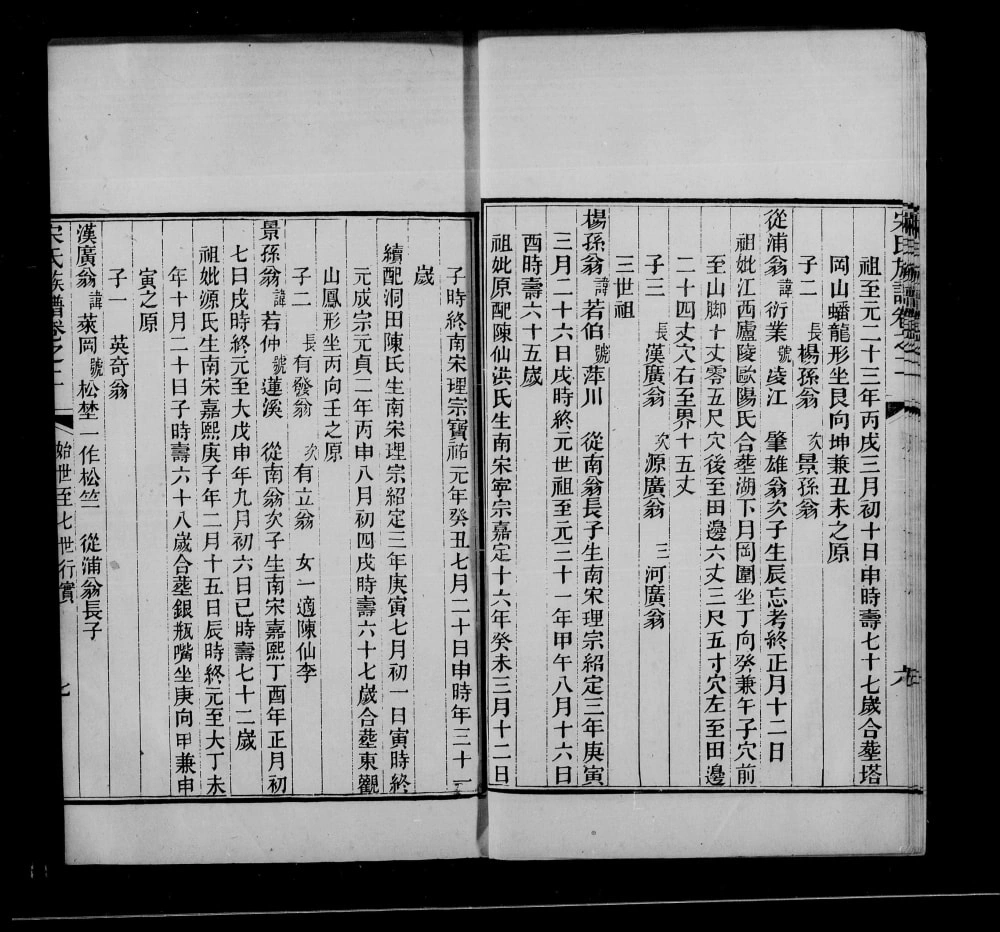 宋氏族譜卷之二 六
祖至元二十三年丙戌三月初十日申時壽七十七歲合塟塔
岡山蟠龍形坐艮向坤兼丑未之原
子二 長楊孫翁 次景孫翁
從浦翁諱衍業號崚江 肇雄翁次子生辰忘考終正月十二日
祖妣江西廬陵歐陽氏合塟湖下月岡圍坐丁向癸兼午子穴前
至山脚十丈零五尺穴後至田邊六丈三尺五寸穴左至田邊
二十四丈穴右至界十五丈
子三 長漢廣翁 次源廣翁 三河廣翁
三世祖
楊孫翁諱若伯號萍川 從南翁長子生南宋理宗紹定三年庚寅
三月二十六日戌時終元世祖至元三十一年甲午八月十六日
酉時壽六十五歲
祖妣原配陳仙洪氏生南宋寧宗嘉定十六年癸未三月十二日
子時終南宋理宗寶祐元年癸丑七月二十日申時年三十一
歲
續配洞田陳氏生南宋理宗紹定三年庚寅七月初一日寅時終
元成宗元貞二年丙申八月初四戌時壽六十七歲合塟東觀
山鳳形坐丙向壬之原
子二 長有發翁 次有立翁 女一適陳仙李
景孫翁諱若仲號蓮溪 從南翁次子生南宋嘉熙丁酉年正月初
七日戌時終元至大戊申年九月初六日巳時壽七十二歲
祖妣源氏生南宋嘉熙庚子年二月十五日辰時終元至大丁未
年十月二十日子時壽六十八歲合塟銀瓶嘴坐庚向甲兼申
寅之原
子一 英奇翁
漢廣翁諱萊岡號松埜一作松竺 從浦翁長子
宋氏族譜卷之二 始世至七世行實 七